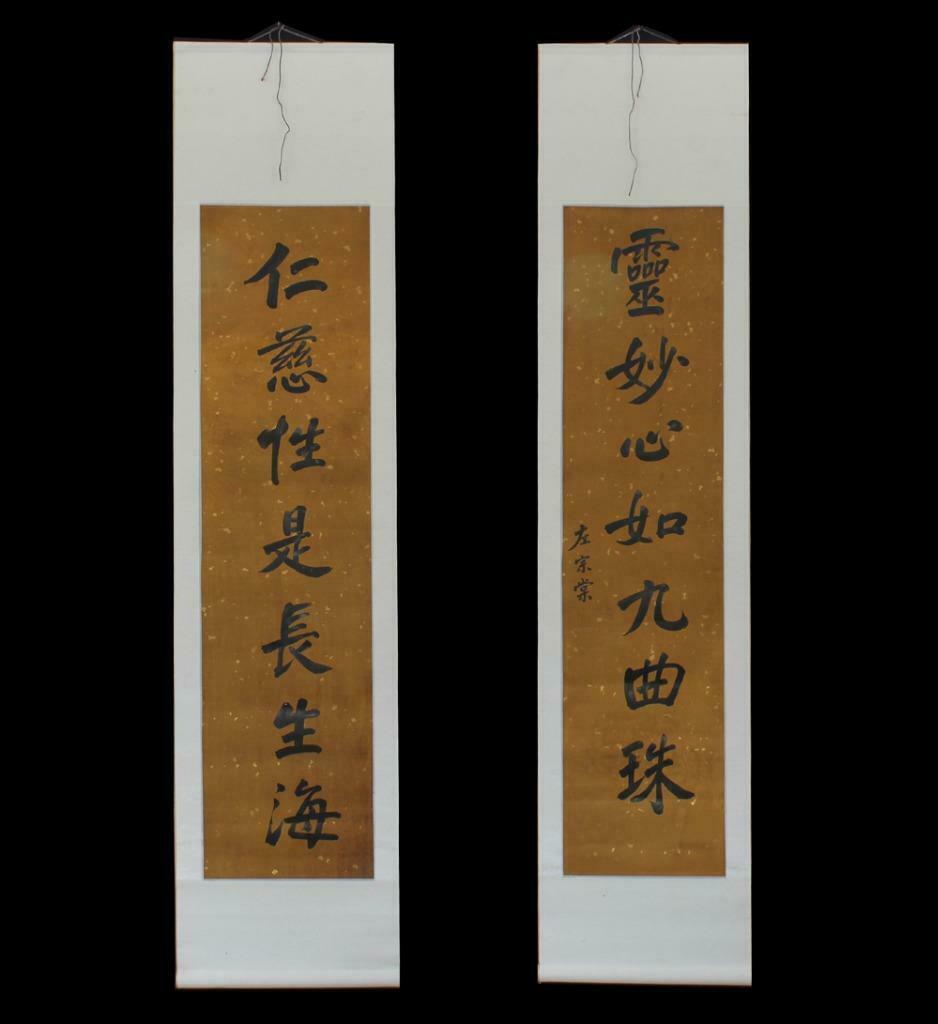 仁慈性是長生海
靈妙心如九曲珠
左宗棠